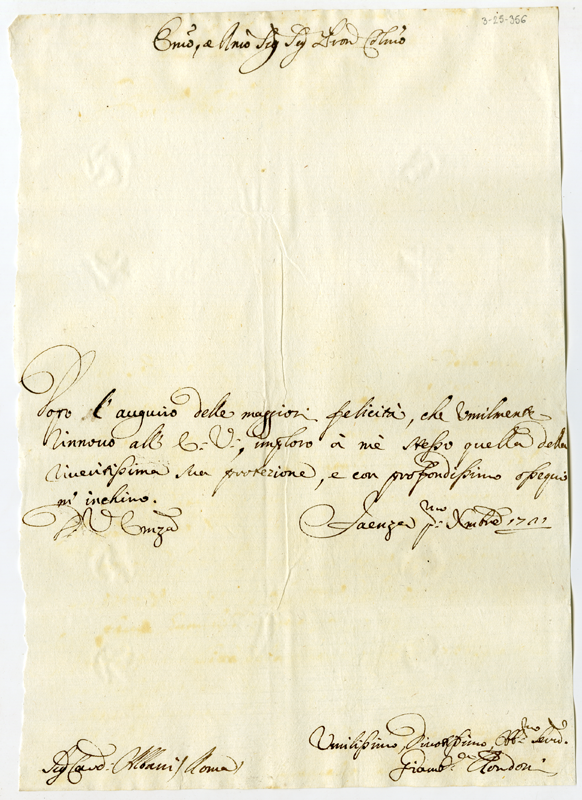 3-25-356
Emo, e Rmo Sig Sig Pron Colmo
Doro l'augurio delle maggiori felicità, che umilmente
rinnovo all' E: V:, imploro à mè stesso quella della
riveritissima sua protezione, e con profondissimo ossequio
m' inchino.
D V Eminza
Faenza pmo Xmbre 1721
Umilissimo, Divotissimo, Obbmo Servid.
Sig Card: Albani / Roma
Giamb: Rondoni